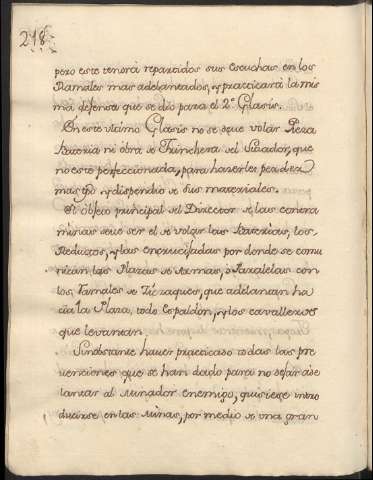 218
pero este tendrà repartidos sus escuchas en los
Ramales mas adelantados, y practicarà la mis
ma defensa que se dio para el 2º Glasis.
En este ultimo Glasis no se deve volàr Pieza
Bateria ni obra de Trinchera del Sitiador, que
no este perfeccionada, para hacerles perder
mas gente y dispendio de sus materiales.
El objeto principal del Director de las contra
minas deve ser el de volar las Baterias, los
Reductos, y las encrucijadas por donde se comu
nican las Plazas de Armas, ò Paralelas con
los Ramales de Ataques, que adelantan ha
cia la Plaza, todo Espaldon, y los cavalleros
que levantan.
Sinobstante haver practicado todas las pre
venciones que se han dado para no dejar ade
lantar al Minador enemigo, quisiese intro
ducirse en las Minas, por medio de una gran